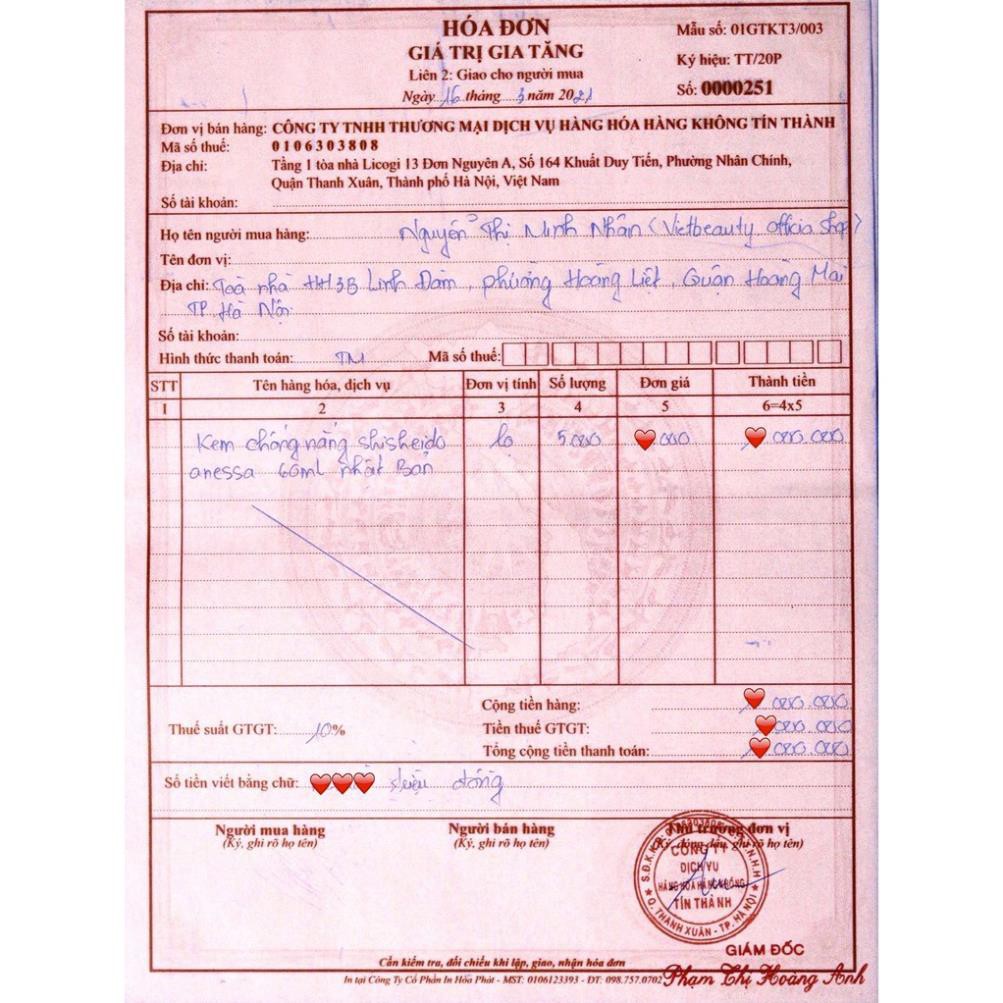 HÓA ĐƠN
GIÁ TRỊ GIA TĂNG
Liên 2: Giao cho người mua
Ngày 16 tháng 3 năm 2021
Mẫu số: 01GTKT3/003
Ký hiệu: TT/20P
Số: 0000251
Đơn vị bán hàng: CÔNG TY TNHH THƯƠNG MẠI DỊCH VỤ HÀNG HÓA HÀNG KHÔNG TÍN THÀNH
Mã số thuế: 0106303808
Địa chỉ: Tầng 1 tòa nhà Licogi 13 Đơn Nguyên A, Số 164 Khuất Duy Tiến, Phường Nhân Chính,
Quận Thanh Xuân, Thành phố Hà Nội, Việt Nam
Số tài khoản:
Họ tên người mua hàng: Nguyễn Thị Minh Nhân (Vietbeauty officia shop)
Tên đơn vị:
Địa chỉ: Toà nhà HH3B Linh Đàm, phường Hoàng Liệt, Quận Hoàng Mai
TP Hà Nội
Số tài khoản:
Hình thức thanh toán: TM Mã số thuế:
STT Tên hàng hóa, dịch vụ Đơn vị tính Số lượng Đơn giá Thành tiền
1 2 3 4 5 6=4x5
Kem chống nắng shisheido lọ 5.000 000 000.000
anessa 60ml nhật Bản
Cộng tiền hàng: 000.000
Thuế suất GTGT: 10% Tiền thuế GTGT: 000.000
Tổng cộng tiền thanh toán: 000.000
Số tiền viết bằng chữ: đồng
Người mua hàng Người bán hàng Thủ trưởng đơn vị
(Ký, ghi rõ họ tên) (Ký, ghi rõ họ tên) (Ký, đóng dấu, ghi rõ họ tên)
CÔNG TY
DỊCH VỤ
HÀNG HÓA HÀNG KHÔNG
TÍN THÀNH
Q. THANH XUÂN - TP. HÀ NỘI
GIÁM ĐỐC
Phạm Thị Hoàng Anh
Cần kiểm tra, đối chiếu khi lập, giao, nhận hóa đơn
In tại Công Ty Cổ Phần In Hòa Phát - MST: 0106123393 - ĐT: 098.757.0702